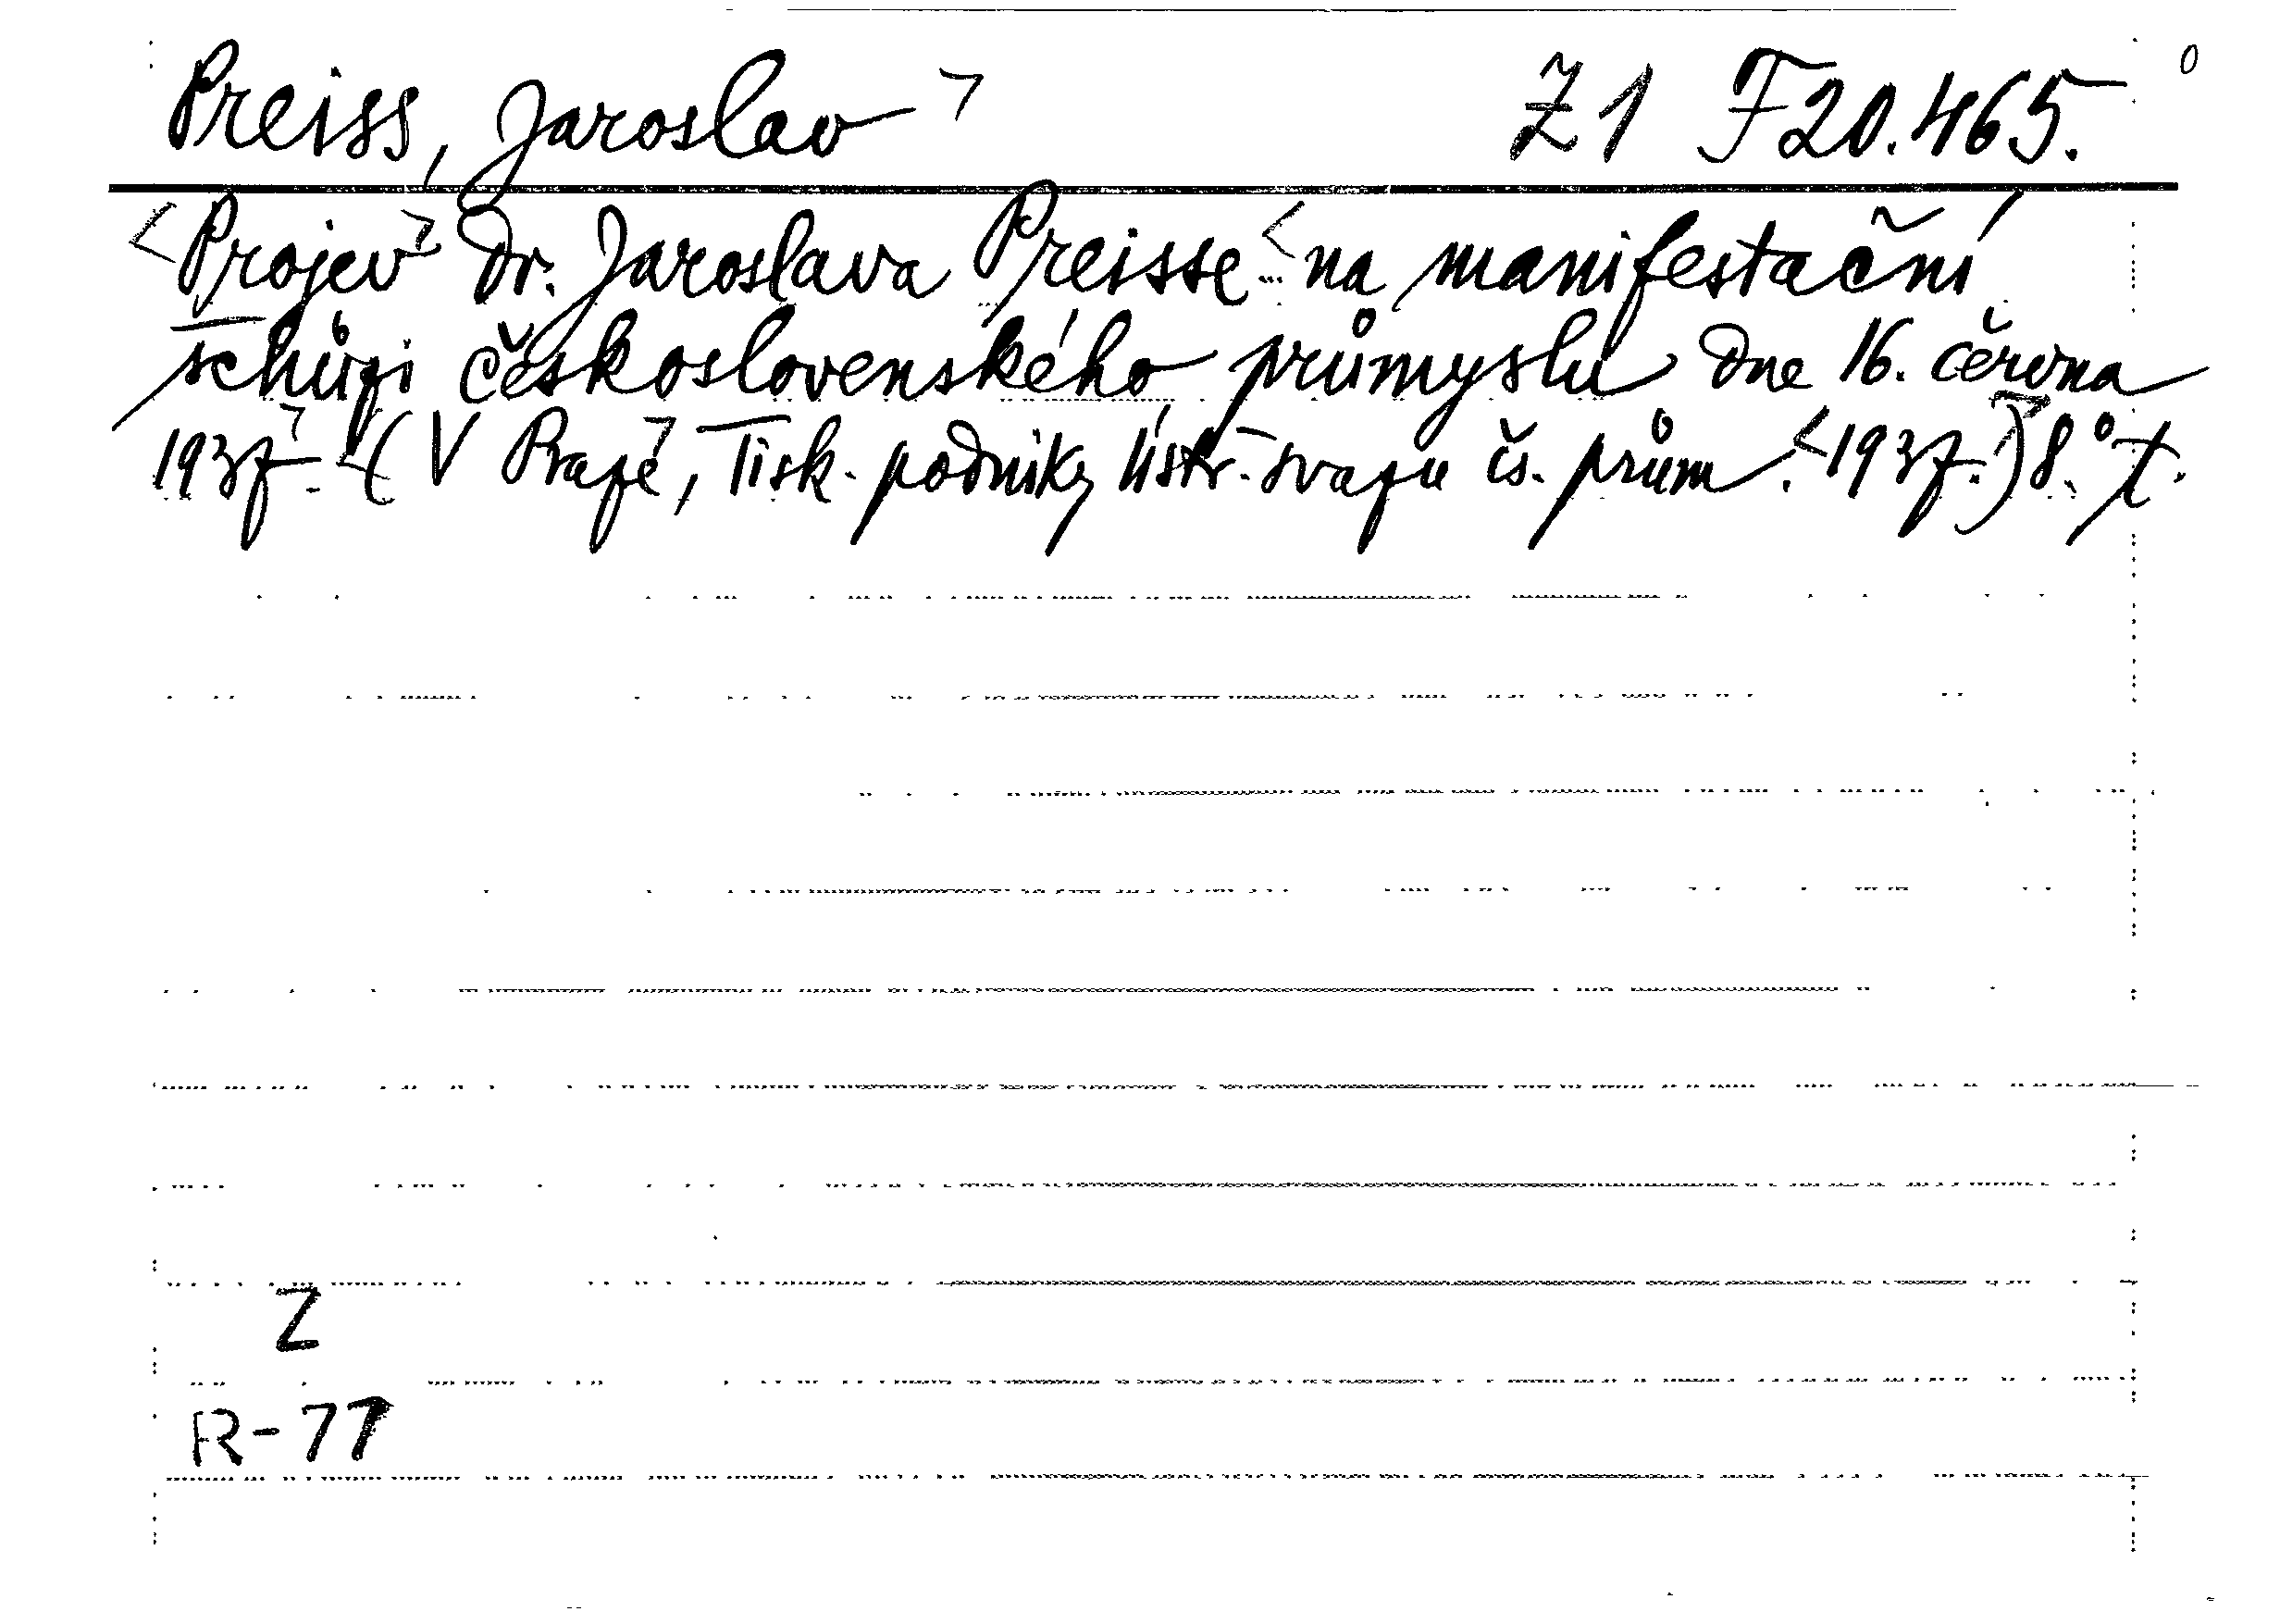 Preiss, Jaroslav Z 1 F 20.465.
Projev Dr. Jaroslava Preisse na manifestační
schůzi československého průmyslu dne 16. června
1937. (V Praze, Tisk. podniky ústř. svazu čs. prům. 1937.) 8.°
Z
R-77